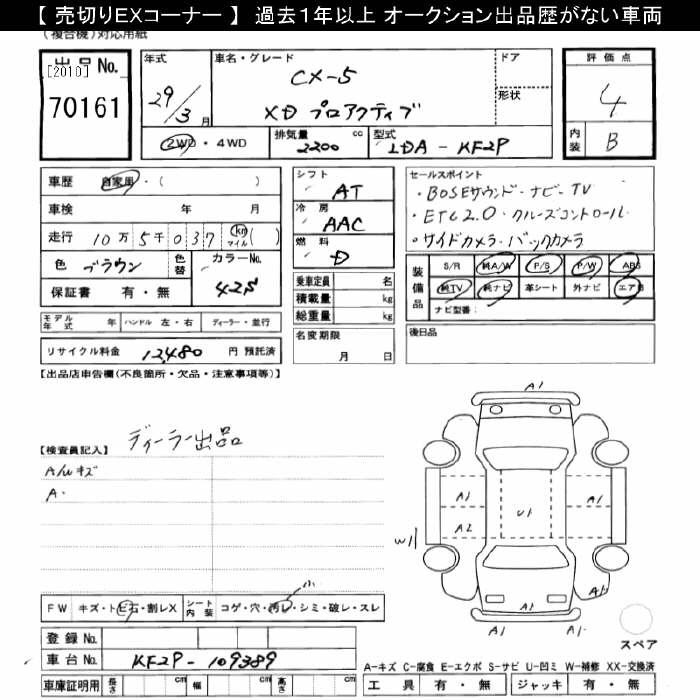 【 売切りＥＸコーナー 】 過去１年以上 オークション出品歴がない車両
(複合機)対応用紙
出品No.
[2010]
70161
年式
29/3月
車名・グレード
CX-5
XD プロアクティブ
ドア
形状
2WD・4WD
排気量 2200 cc
型式 LDA-KF2P
評価点
4
内装 B
車歴 自家用・( )
車検 年 月
走行 10万5千037 km マイル ( )
色 ブラウン
色替
カラーNo. 42S
保証書 有・無
シフト AT
冷房 AAC
燃料 D
セールスポイント
・BOSEサウンド・ナビ-TV
・ETC2.0・クルーズコントロール
・サイドカメラ・バックカメラ
乗車定員 名
積載量 kg
総重量 kg
装備品
S/R 純A/W P/S P/W ABS
純TV 純ナビ 革シート 外ナビ エアB
ナビ型番:
モデル年式 年 ハンドル 左・右 ディーラー・並行
名変期限
月 日
後日品
リサイクル料金 12,480 円 預託済
【出品店申告欄(不良箇所・欠品・注意事項等)】
ディーラー出品
【検査員記入】
A/wキズ
A・
A1
A1
A1
A2
U1
W1
A1
A1
A1
FW キズ・トビ石・割レX
シート内装 コゲ・穴・汚レ・シミ・破レ・スレ
小
登録No.
車台No. KF2P-109389
車庫証明用 長さ cm 幅 cm 高さ cm
スペア
A-キズ C-腐食 E-エクボ S-サビ U-凹ミ W-補修 XX-交換済
工具 有・無 ジャッキ 有・無